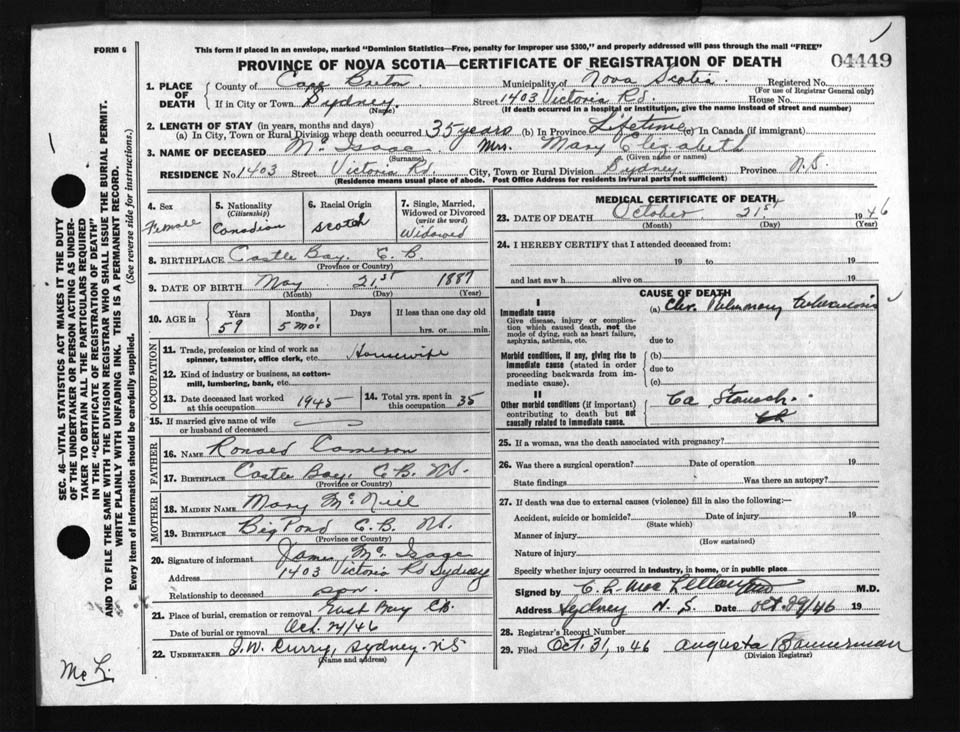 FORM 6
This form if placed in an envelope, marked "Dominion Statistics—Free, penalty for improper use $300," and properly addressed will pass through the mail "FREE"
PROVINCE OF NOVA SCOTIA—CERTIFICATE OF REGISTRATION OF DEATH
04449
1. PLACE OF DEATH County of Cape Breton Municipality of Nova Scotia Registered No.
(For use of Registrar General only)
If in City or Town Sydney. Street 1403 Victoria Rd. House No.
(Name) (If death occurred in a hospital or institution, give the name instead of street and number)
2. LENGTH OF STAY (in years, months and days)
(a) In City, Town or Rural Division where death occurred 35 years (b) In Province Lifetime (c) In Canada (if immigrant)
3. NAME OF DECEASED Mc Isaac Mrs. Mary Elizabeth
(Surname) (Given name or names)
RESIDENCE No. 1403 Street Victoria Rd City, Town or Rural Division Sydney. Province N.S.
(Residence means usual place of abode. Post Office Address for residents in rural parts not sufficient)
4. Sex
Female
5. Nationality
(Citizenship)
Canadian
6. Racial Origin
Scotch
7. Single, Married, Widowed or Divorced
(write the word)
Widowed
8. BIRTHPLACE Castle Bay. C.B.
(Province or Country)
9. DATE OF BIRTH May 21st 1887
(Month) (Day) (Year)
10. AGE in
Years Months Days If less than one day old
59 5 mos hrs. or min.
OCCUPATION
11. Trade, profession or kind of work as spinner, teamster, office clerk, etc. Housewife
12. Kind of industry or business, as cotton-mill, lumbering, bank, etc.
13. Date deceased last worked at this occupation 1945
14. Total yrs. spent in this occupation 35
15. If married give name of wife or husband of deceased
FATHER
16. NAME Ronald Cameron
17. BIRTHPLACE Castle Bay, C.B. N.S.
(Province or Country)
MOTHER
18. MAIDEN NAME Mary McNeil
19. BIRTHPLACE Big Pond C.B. N.S.
(Province or Country)
20. Signature of informant James Mc Isaac
Address 1403 Victoria Rd Sydney
Relationship to deceased son.
21. Place of burial, cremation or removal East Bay C.B.
Date of burial or removal Oct. 24/46
22. UNDERTAKER T.W. Curry, Sydney. N.S
(Name and address)
MEDICAL CERTIFICATE OF DEATH
23. DATE OF DEATH October 21st 1946
(Month) (Day) (Year)
24. I HEREBY CERTIFY that I attended deceased from:
19 to 19
and last saw h alive on 19
CAUSE OF DEATH
I
Immediate cause
Give disease, injury or complication which caused death, not the mode of dying, such as heart failure, asphyxia, asthenia, etc.
(a) Chr. Pulmonary tuberculosis
due to
Morbid conditions, if any, giving rise to immediate cause (stated in order proceeding backwards from immediate cause).
(b)
due to
(c)
II
Other morbid conditions (if important) contributing to death but not causally related to immediate cause.
Ca Stomach.
25. If a woman, was the death associated with pregnancy?
26. Was there a surgical operation? Date of operation 19
State findings Was there an autopsy?
27. If death was due to external causes (violence) fill in also the following:—
Accident, suicide or homicide? Date of injury 19
(State which)
Manner of injury
(How sustained)
Nature of injury
Specify whether injury occurred in industry, in home, or in public place
Signed by C. L. MacLellan M.D.
Address Sydney N. S. Date Oct. 29/46 19
28. Registrar's Record Number
29. Filed Oct. 31, 1946 Augusta Bannerman
(Division Registrar)
SEC. 46—VITAL STATISTICS ACT MAKES IT THE DUTY
OF THE UNDERTAKER OR PERSON ACTING AS UNDERTAKER TO OBTAIN ALL THE PARTICULARS REQUIRED
IN THE "CERTIFICATE OF REGISTRATION OF DEATH"
AND TO FILE THE SAME WITH THE DIVISION REGISTRAR WHO SHALL ISSUE THE BURIAL PERMIT.
WRITE PLAINLY WITH UNFADING INK. THIS IS A PERMANENT RECORD.
Every item of information should be carefully supplied. (See reverse side for instructions.)
Mc I.